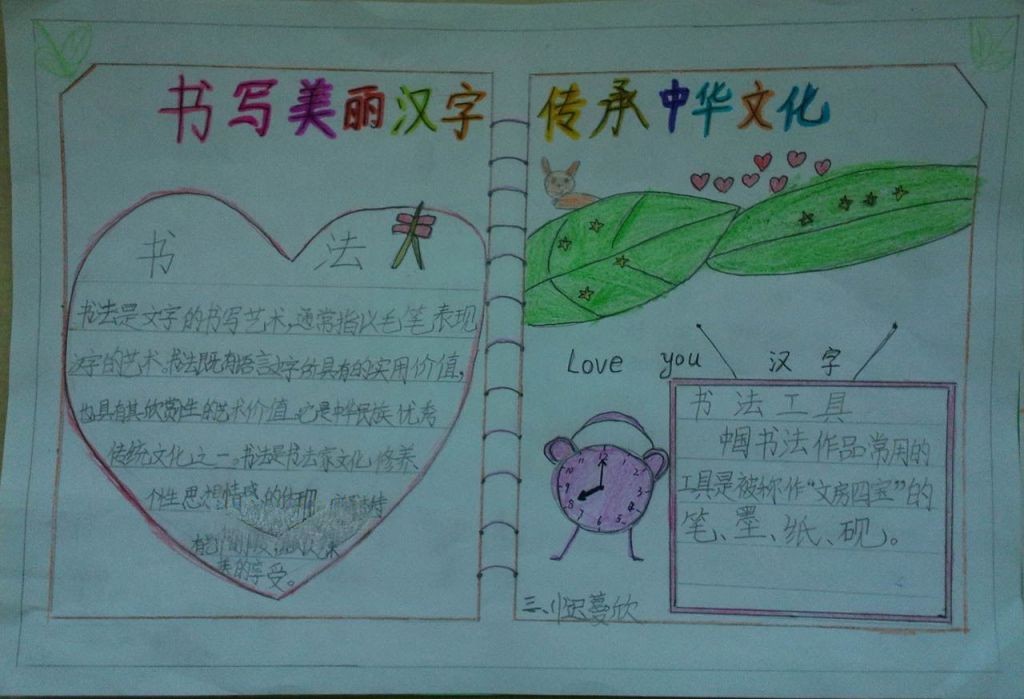 书写美丽汉字
书法
书法是文字的书写艺术,通常指以毛笔表现
汉字的艺术。书法既有语言文字所具有的实用价值,
也具有其欣赏性的艺术价值。它是中华民族优秀
传统文化之一。书法是书法家文化修养
个性思想情感的体现
美的享受。
传承中华文化
Love you 汉字
12 1 2 3 4 5 6 7 8 9 10 11
书法工具
中国书法作品常用的
工具是被称作“文房四宝”的
笔、墨、纸、砚。
三、